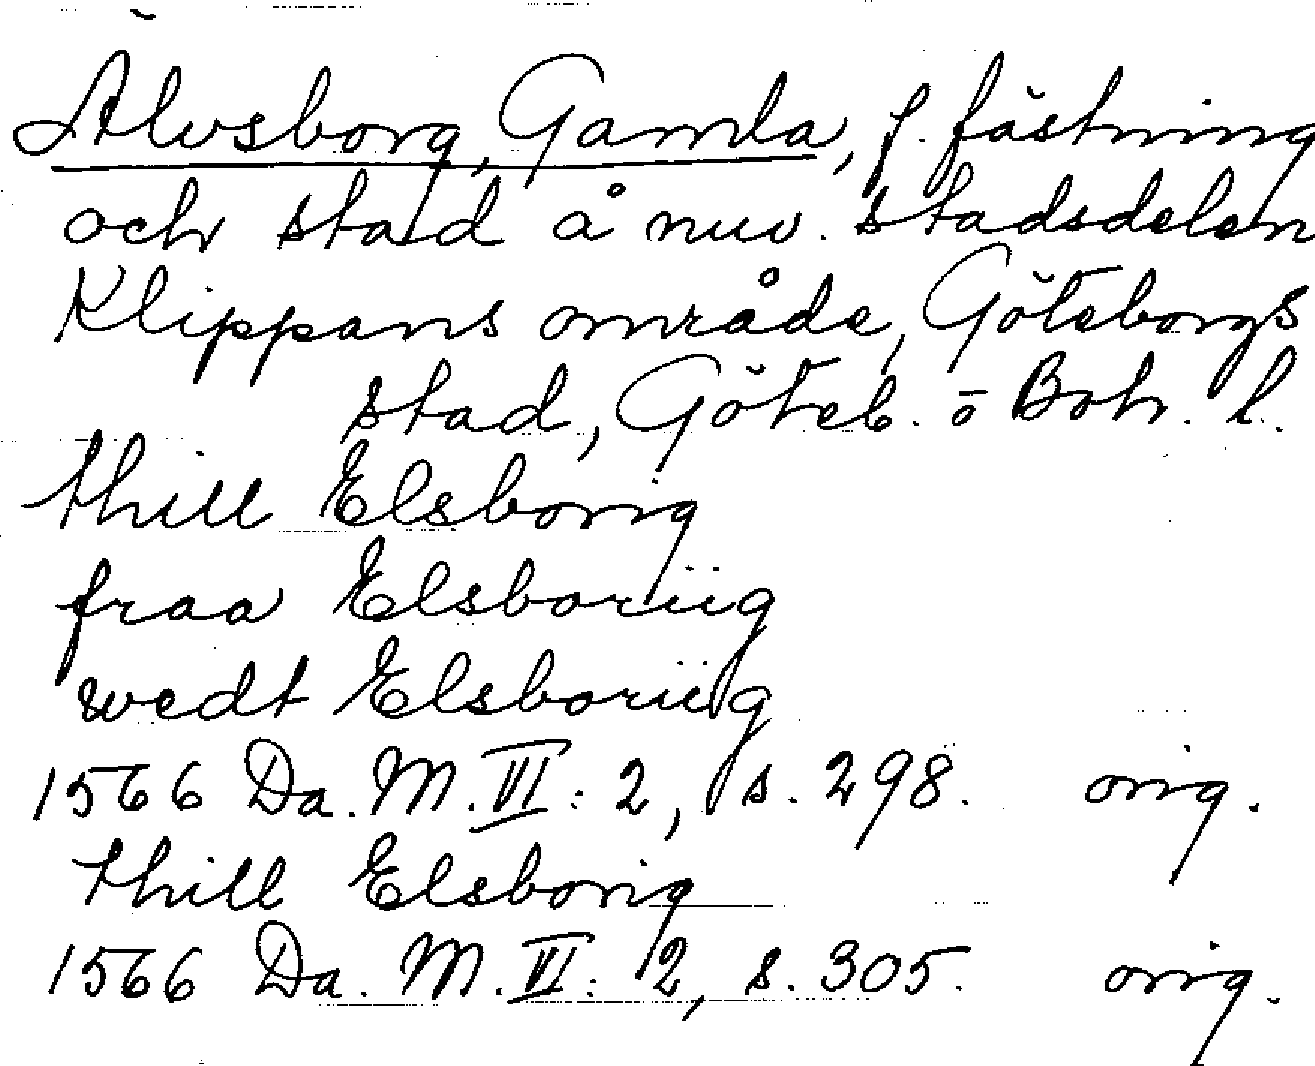 Älvsborg, Gamla, f. fästning
och stad å nuv. stadsdelen
Klippans område, Göteborgs
stad, Göteb. o Boh. l.
thill Elsborig
fraa Elsboriig
wedt Elsboriig
1566 Da. M. VI: 2, s. 298. orig.
thill Elsborig
1566 Da. M. VI: 2, s. 305. orig.